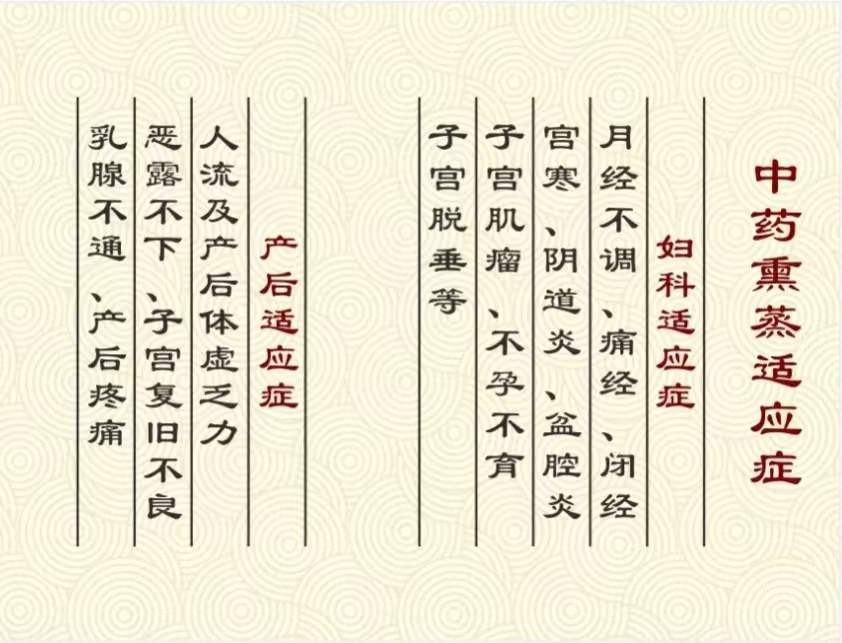 中药熏蒸适应症
妇科适应症
月经不调、痛经、闭经
宫寒、阴道炎、盆腔炎
子宫肌瘤、不孕不育
子宫脱垂等
产后适应症
人流及产后体虚乏力
恶露不下、子宫复旧不良
乳腺不通、产后疼痛